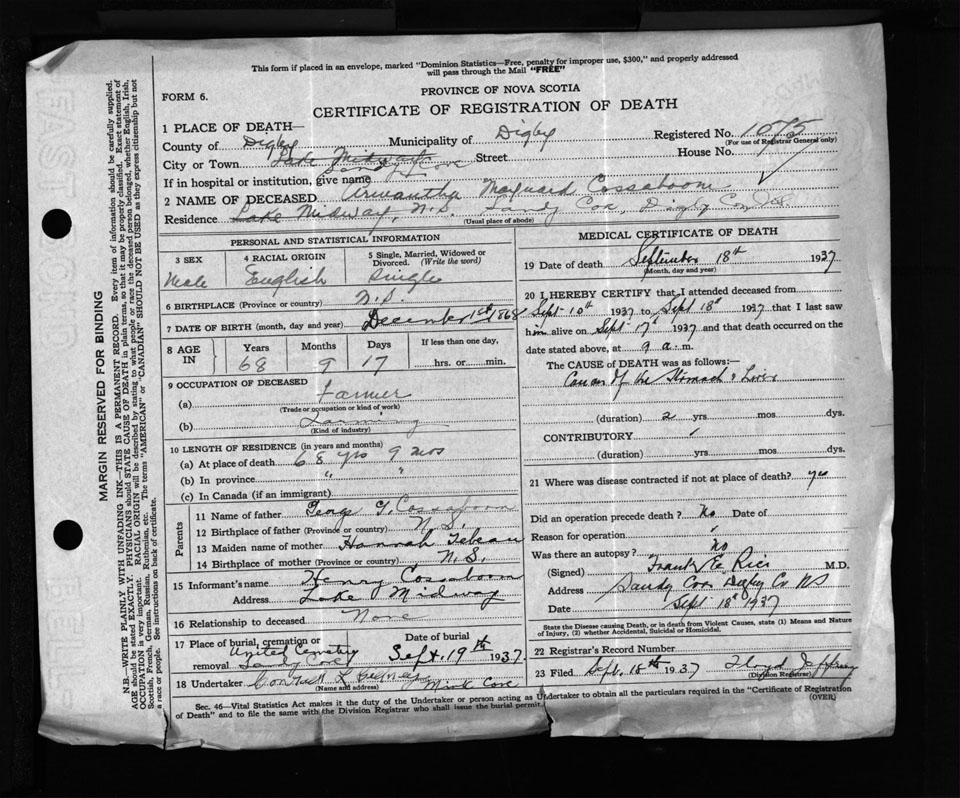 This form if placed in an envelope, marked "Dominion Statistics—Free, penalty for improper use, $300," and properly addressed
will pass through the Mail "FREE"
PROVINCE OF NOVA SCOTIA
FORM 6.
CERTIFICATE OF REGISTRATION OF DEATH
1 PLACE OF DEATH—
Registered No. 1075
(For use of Registrar General only)
County of Digby Municipality of Digby
House No.
City or Town Lake Midway Sandy Cove Street
If in hospital or institution, give name
2 NAME OF DECEASED Armantha Maynard Cossaboom
Residence Lake Midway, N.S. Sandy Cove, Digby Co. N.S.
(Usual place of abode)
PERSONAL AND STATISTICAL INFORMATION
3 SEX 4 RACIAL ORIGIN 5 Single, Married, Widowed or Divorced (Write the word)
Male English Single
6 BIRTHPLACE (Province or country) N.S.
7 DATE OF BIRTH (month, day and year) December 1st 1868
8 AGE IN Years Months Days If less than one day,
68 9 17 hrs. or min.
9 OCCUPATION OF DECEASED
(a) Farmer
(Trade or occupation or kind of work)
(b) Farming
(Kind of industry)
10 LENGTH OF RESIDENCE (in years and months)
(a) At place of death 68 yrs 9 mos
(b) In province " "
(c) In Canada (if an immigrant)
Parents
11 Name of father George Cossaboom
12 Birthplace of father (Province or country) N.S.
13 Maiden name of mother Hannah
14 Birthplace of mother (Province or country) N.S.
15 Informant's name Henry Cossaboom
Address Lake Midway
16 Relationship to deceased None
17 Place of burial, cremation or removal United Cemetery Sandy Cove
Date of burial Sept. 19th 1937.
18 Undertaker L Mink Cove
(Name and address)
MEDICAL CERTIFICATE OF DEATH
19 Date of death September 18th 1937
(Month, day and year)
20 I HEREBY CERTIFY that I attended deceased from
Sept 10th 1937 to Sept 18th 1937 that I last saw
him alive on Sept 17th 1937 and that death occurred on the
date stated above, at 9 a.m.
The CAUSE OF DEATH was as follows:—
Cancer of the Stomach & Liver
(duration) 2 yrs. mos. dys.
CONTRIBUTORY
(duration) yrs. mos. dys.
21 Where was disease contracted if not at place of death? yes
Did an operation precede death? No Date of
Reason for operation
Was there an autopsy? No
(Signed) Frank E. Rice M.D.
Address Sandy Cove Digby Co NS
Date Sept 18th 1937
State the Disease causing Death, or in death from Violent Causes, state (1) Means and Nature
of Injury, (2) whether Accidental, Suicidal or Homicidal.
22 Registrar's Record Number
23 Filed Sept. 18th 1937 Lloyd Jeffrey
(Division Registrar)
Sec. 46—Vital Statistics Act makes it the duty of the Undertaker or person acting as Undertaker to obtain all the particulars required in the "Certificate of Registration
of Death" and to file the same with the Division Registrar who shall issue the burial permit.
(OVER)
MARGIN RESERVED FOR BINDING
N.B.—WRITE PLAINLY WITH UNFADING INK—THIS IS A PERMANENT RECORD. Every item of information should be carefully supplied.
AGE should be stated EXACTLY. PHYSICIANS should STATE CAUSE OF DEATH in plain terms, so that it may be properly classified. Exact statement of
OCCUPATION is very important. RACIAL ORIGIN will be described by stating to what people or race the deceased person belonged, whether English, Irish,
Scottish, French, German, Russian, Ruthenian, etc. The terms "AMERICAN" or "CANADIAN" SHOULD NOT BE USED as they express citizenship but not
a race or people. See instructions on back of certificate.